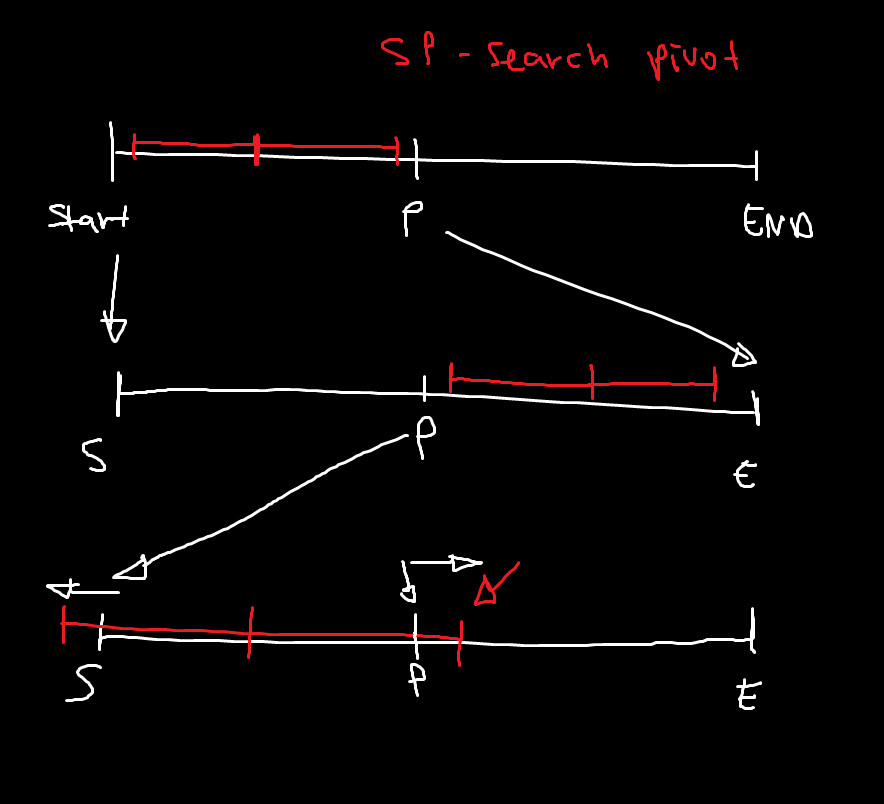 SP - Search pivot
Start P END
S P E
S P E